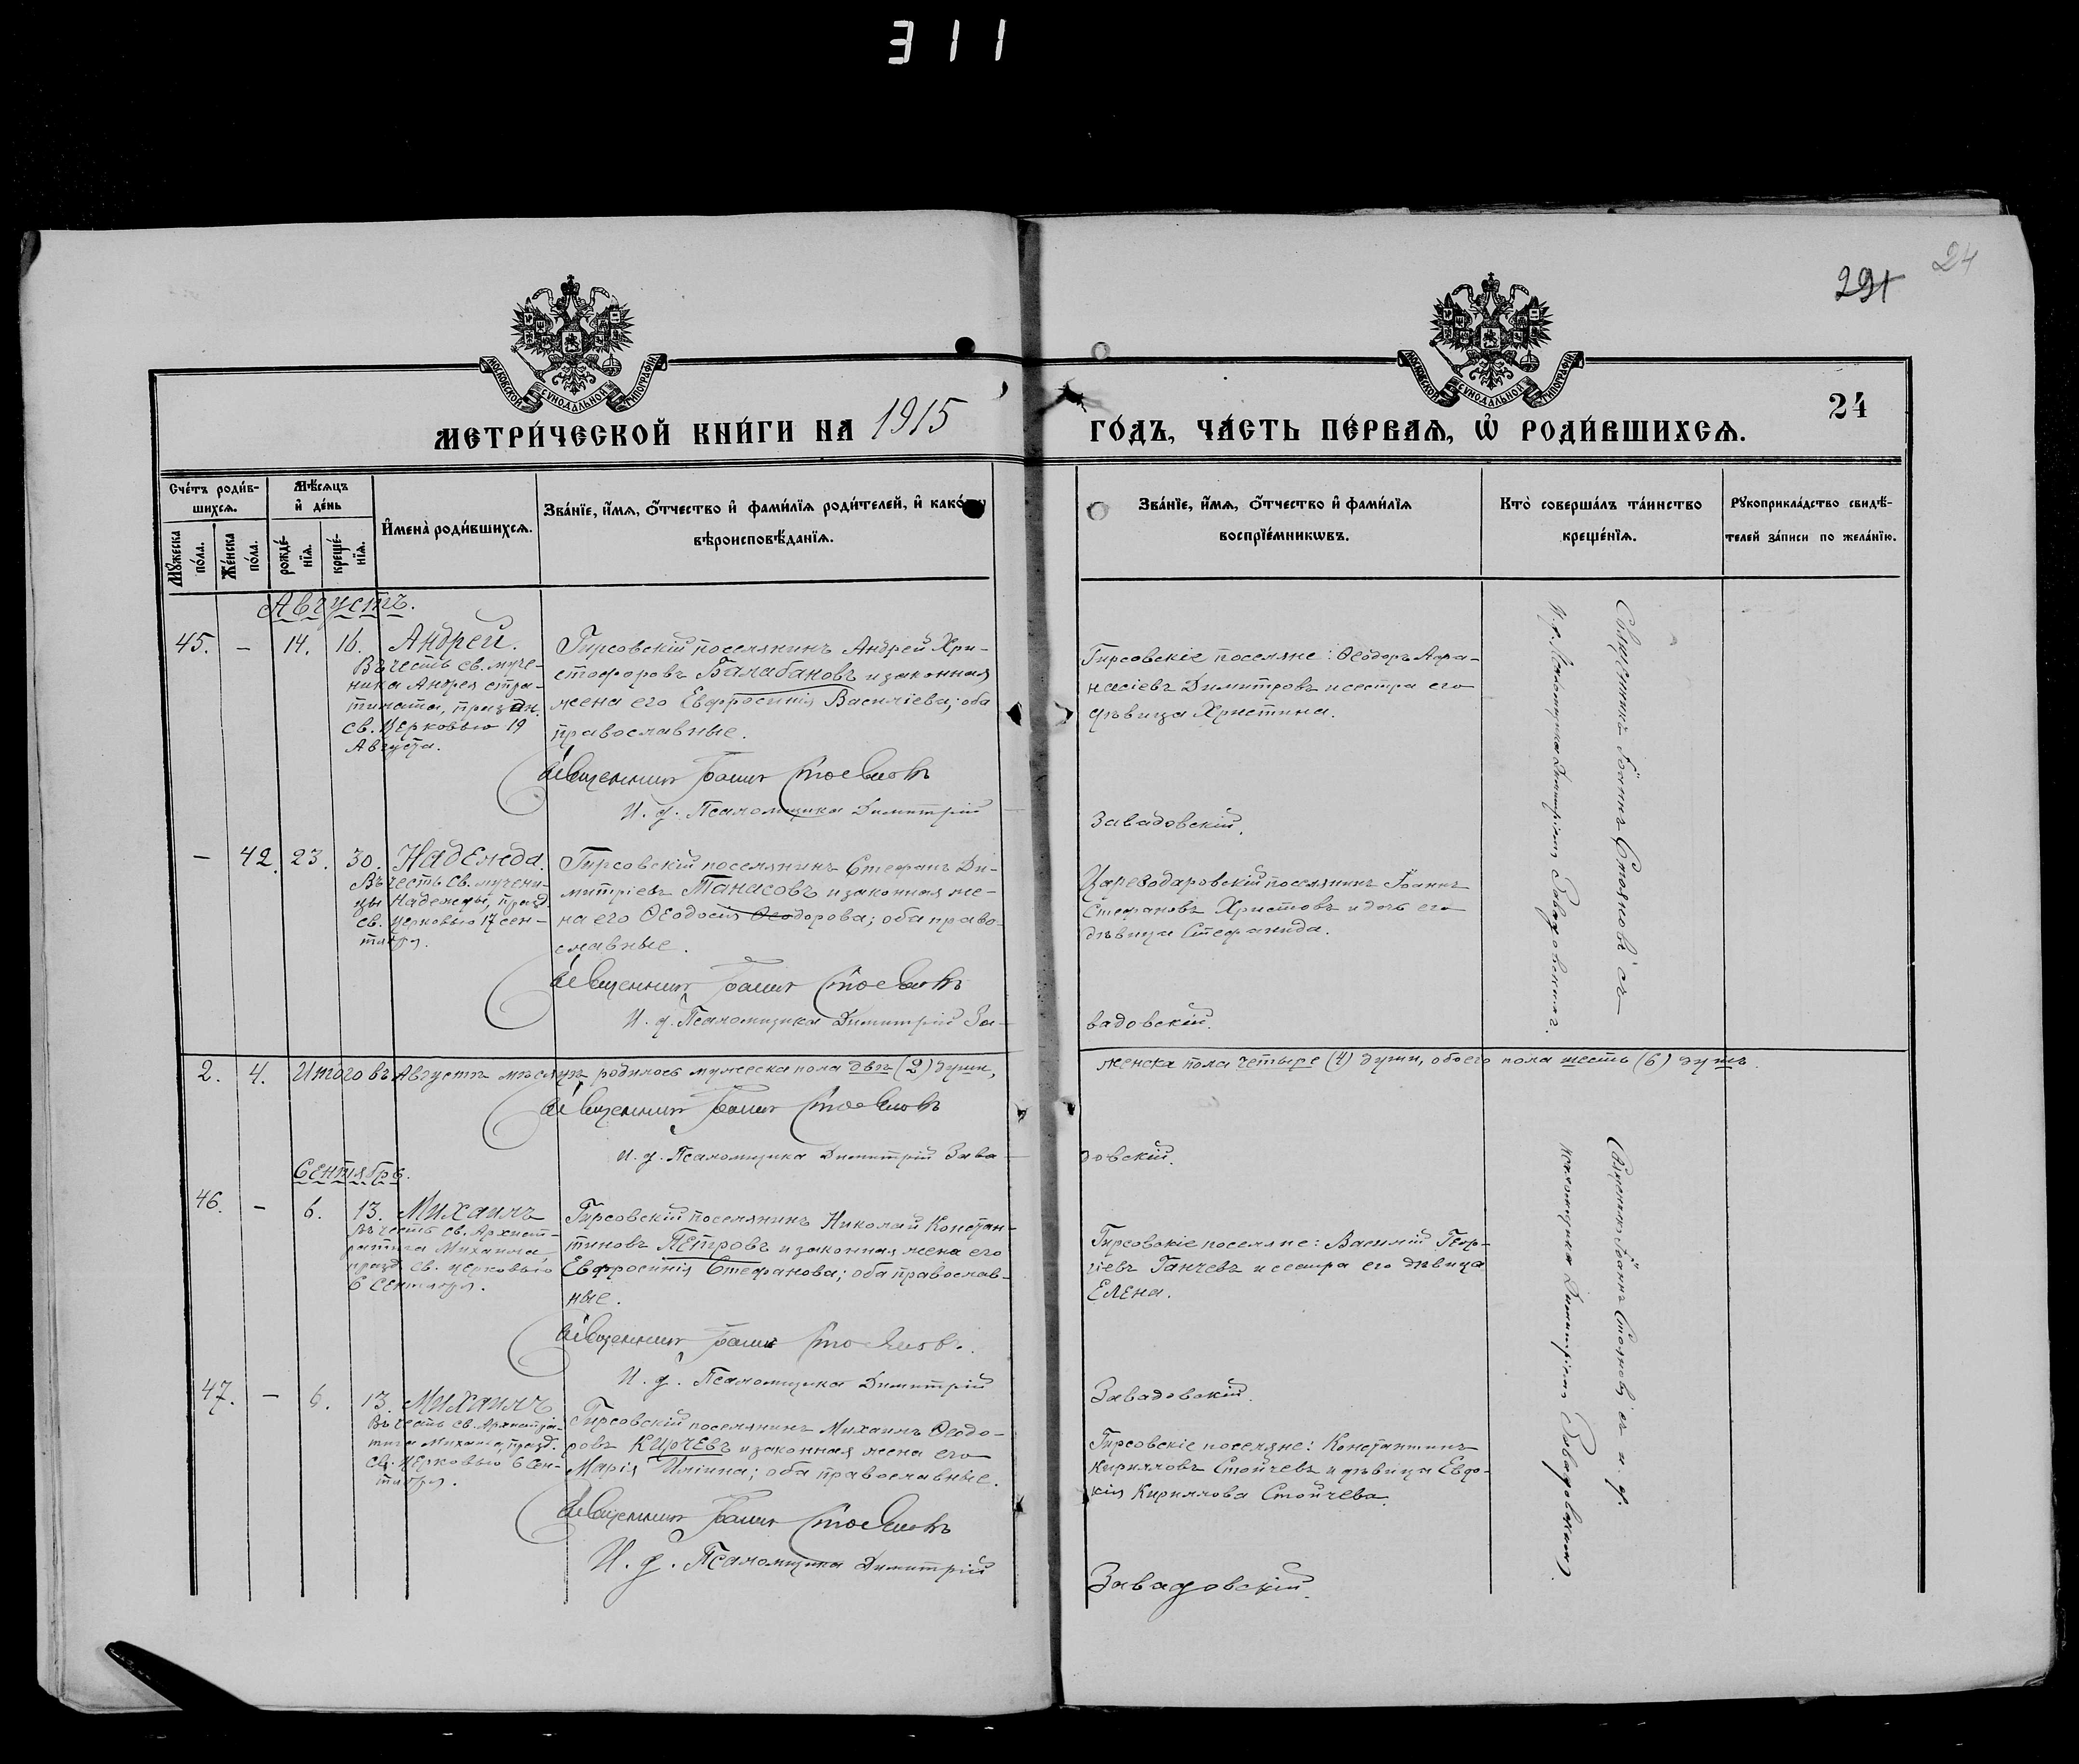 311
24
291
МОСКОВСКОЙ СѴНОДАЛЬНОЙ ТИПОГРАФІИ
МОСКОВСКОЙ СѴНОДАЛЬНОЙ ТИПОГРАФІИ
24
МЕТРИ́ЧЕСКОЙ КНИ́ГИ НА 1915 ГО́ДЪ, ЧА́СТЬ ПЕ́РВАѦ, Ѡ҆ РОДИ́ВШИХСѦ.
Сче́тъ роди́в-
шихсѧ.
Мꙋ́жеска по́ла.
Же́нска по́ла.
Мѣ́сѧцъ
и҆ де́нь
рожде́-нїѧ.
креще́-нїѧ.
И҆мена̀ роди́вшихсѧ.
Зва́нїе, и҆́мѧ, ѻ҆́тчество и҆ фами́лїѧ роди́телей, и҆ како́гѡ
вѣроисповѣ́данїѧ.
Зва́нїе, и҆́мѧ, ѻ҆́тчество и҆ фами́лїѧ
воспрїе́мникѡвъ.
Кто̀ соверша́лъ та́инство
креще́нїѧ.
Рꙋкоприкла́дство свидѣ́-
телей за́писи по жела́нїю.
Августъ.
45. — 14. 16. Андрей.
Въ честь св. муче-
ника Андрея стра-
тилата, праздн.
св. Церковью 19
Августа.
Гирсовскій поселянинъ Андрей Хри-
стофоровъ Балабановъ и законная
жена его Евфросинія Василіева; оба
православные.
Священникъ Іоаннъ Стояновъ
И. д. Псаломщика Димитрій
Гирсовскіе поселяне: Ѳеодоръ Аѳа-
насіевъ Димитровъ и сестра его
дѣвица Христина.
Завадовскій.
Священникъ Іоаннъ Стояновъ съ
И. д. Псаломщика Димитріемъ Завадовскимъ.
— 42. 23. 30. Надежда.
Въ честь св. мучени-
цы Надежды, празд.
св. церковью 17 сен-
тября.
Гирсовскій поселянинъ Стефанъ Ди-
митріевъ Танасовъ и законная же-
на его Ѳеодосія Ѳеодорова; оба право-
славные.
Священникъ Іоаннъ Стояновъ
И. д. Псаломщика Димитрій За-
Цареводаровскій поселянинъ Іоаннъ
Стефановъ Христовъ и дочь его
дѣвица Стефанида.
вадовскій.
2. 4. Итого въ Августѣ мѣсяцѣ родилось мужеска пола двѣ (2) души,
женска пола четыре (4) души, обоего пола шесть (6) душъ.
Священникъ Іоаннъ Стояновъ
И. д. Псаломщика Димитрій Зава-
довскій.
Сентябрь.
46. — 6. 13. Михаилъ
Въ честь св. Архист-
ратига Михаила,
празд. св. церковью
6 Сентября.
Гирсовскій поселянинъ Николай Констан-
тиновъ Петровъ и законная жена его
Евфросинія Стефанова; оба православ-
ные.
Священникъ Іоаннъ Стояновъ.
И. д. Псаломщика Димитрій
Гирсовскіе поселяне: Василій Геор-
гіевъ Ганчевъ и сестра его дѣвица
Елена.
Завадовскій.
Священникъ Іоаннъ Стояновъ съ и. д.
псаломщика Димитріемъ Завадовскимъ.
47. — 6. 13. Михаилъ
Въ честь св. Архистра-
тига Михаила, празд.
св. Церковью 6 Сен-
тября.
Гирсовскій поселянинъ Михаилъ Ѳеодо-
ровъ Кирчевъ и законная жена его
Марія Иліина; оба православные.
Священникъ Іоаннъ Стояновъ
И. д. Псаломщика Димитрій
Гирсовскіе поселяне: Константинъ
Кирилловъ Стойчевъ и дѣвица Евдо-
кія Кириллова Стойчева.
Завадовскій.